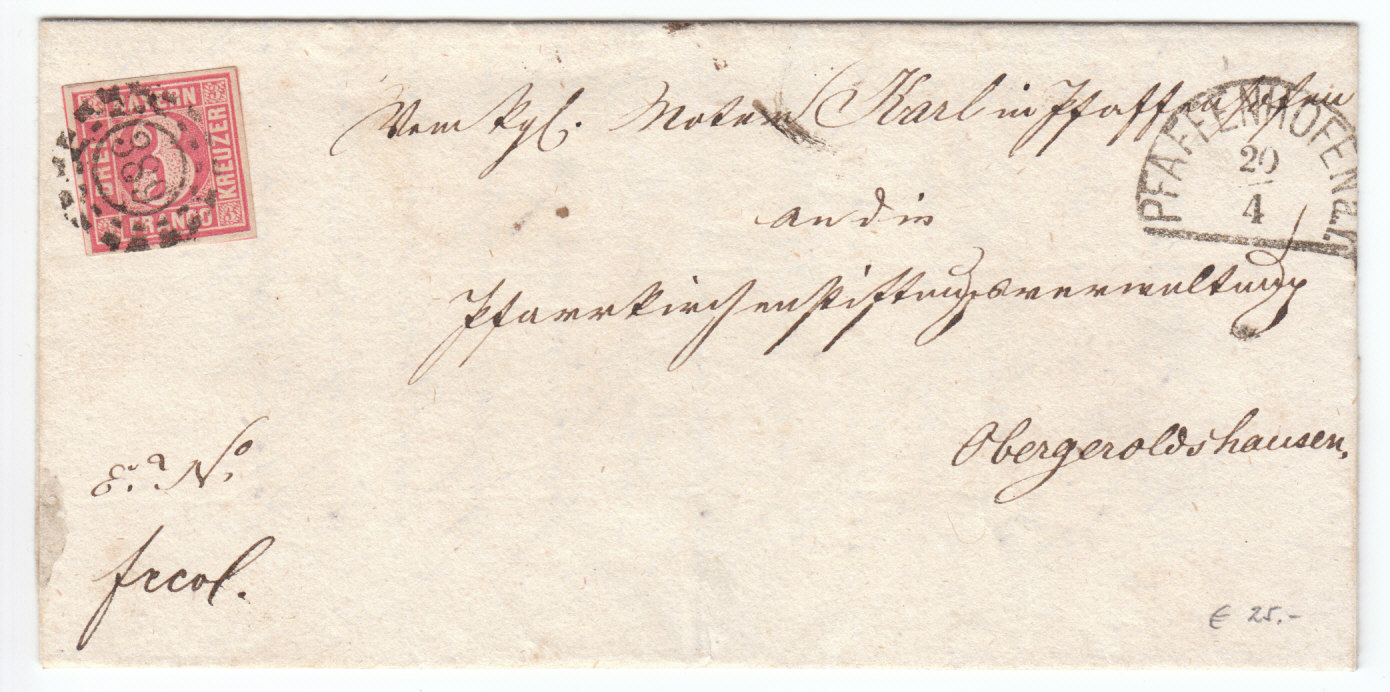 BAYERN
DREI
3
KREUZER
FRANCO
Vom kgl. Notar Karl in Pfaffenhofen
PFAFFENHOFEN a./I.
20
4
an die
Pfarrkirchenstiftungsverwaltung
Obergeroldshausen.
E. a. No.
frcol.
€ 25.-